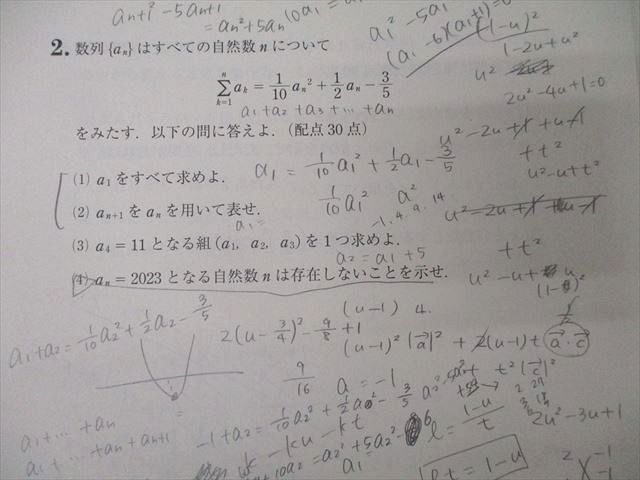 a_{n+1}² - 5a_{n+1}
= a_n² + 5a_n
a_1² - 5a_1
(a_1 - 6)(a_1 + 1) = 0
2. 数列{a_n}はすべての自然数 n について
\sum_{k=1}^{n} a_k = \frac{1}{10}a_n² + \frac{1}{2}a_n - \frac{3}{5}
a_1 + a_2 + a_3 + … + a_n
をみたす．以下の問に答えよ．（配点30点）
(1) a_1 をすべて求めよ．
a_1 = \frac{1}{10}a_1² + \frac{1}{2}a_1 - \frac{3}{5}
(2) a_{n+1} を a_n を用いて表せ．
a_1 =
\frac{1}{10}a_1²
a²
-1. 4. 9. 14
(3) a_4 = 11 となる組 (a_1, a_2, a_3) を1つ求めよ．
a_2 = a_1 + 5
(4) a_n = 2023 となる自然数 n は存在しないことを示せ．
(1-u)²
1 - 2u + u²
u²
2u² - 4u + 1 = 0
u² - 2u + 1 + u - 1
+ t²
u² - u + t²
u² - 2u + 1 + u - 1
+ t²
u² - u +
a_1 + a_2 = \frac{1}{10}a_2² + \frac{1}{2}a_2 - \frac{3}{5}
2(u - \frac{3}{4})² - \frac{9}{8} + 1
\frac{9}{16}
(u-1) 4.
(u-1)²|\vec{a}|² + 2(u-1)t \vec{a}·\vec{c}
+ t²|\vec{c}|²
a = -1
-1 + a_2 = \frac{1}{10}a_2² + \frac{1}{2}a_2 - \frac{3}{5}
a_1 + … + a_n
a_1 + … + a_n + a_{n+1}
- ku - kt
10a_2 = a_2² + 5a_2 - 6
a_1 =
l = \frac{1-u}{t}
lt = 1 - u
2u² - 3u + 1